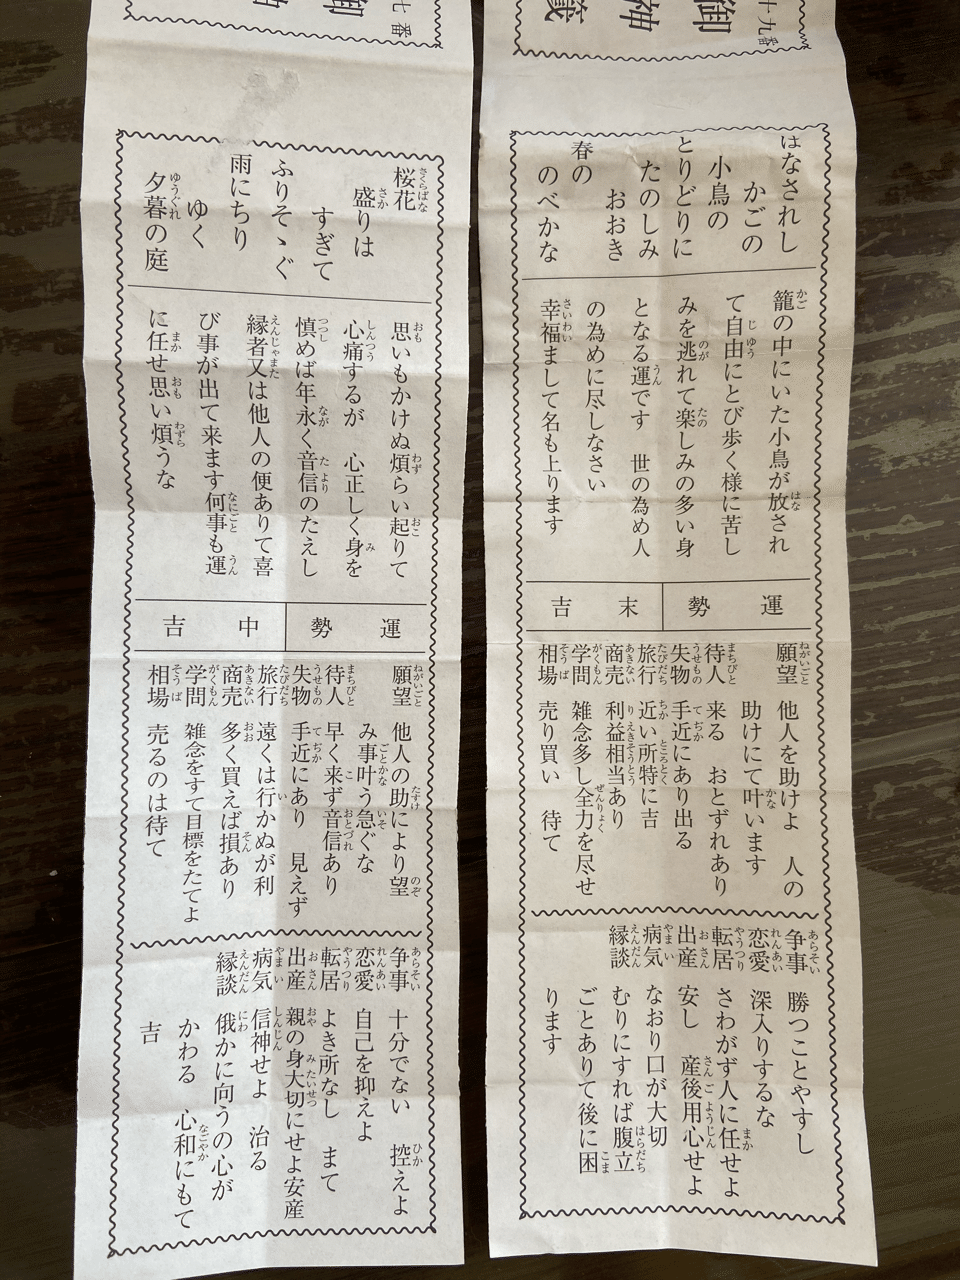 十九番
御神籤
はなされし
かごの
小鳥の
とりどりに
たのしみ
おおき
春の
のべかな
籠の中にいた小鳥が放され
て自由にとび歩く様に苦し
みを逃れて楽しみの多い身
となる運です　世の為め人
の為めに尽しなさい
幸福まして名も上ります
運勢
末吉
願望　他人を助けよ　人の
助けにて叶います
待人　来る　おとずれあり
失物　手近にあり出る
旅行　近い所特に吉
商売　利益相当あり
学問　雑念多し全力を尽せ
相場　売り買い　待て
争事　勝つことやすし
恋愛　深入りするな
転居　さわがず人に任せよ
出産　安し　産後用心せよ
病気　なおり口が大切
縁談　むりにすれば腹立
ごとありて後に困
ります
七番
御神
桜花
盛りは
すぎて
ふりそゝぐ
雨にちり
ゆく
夕暮の庭
思いもかけぬ煩らい起りて
心痛するが　心正しく身を
慎めば年永く音信のたえし
縁者又は他人の便ありて喜
び事が出て来ます何事も運
に任せ思い煩うな
運勢
中吉
願望　他人の助により望
み事叶う急ぐな
待人　早く来ず音信あり
失物　手近にあり　見えず
旅行　遠くは行かぬが利
商売　多く買えば損あり
学問　雑念をすて目標をたてよ
相場　売るのは待て
争事　十分でない　控えよ
恋愛　自己を抑えよ
転居　よき所なし　まて
出産　親の身大切にせよ安産
病気　信神せよ　治る
縁談　俄かに向うの心が
かわる　心和にもて
吉